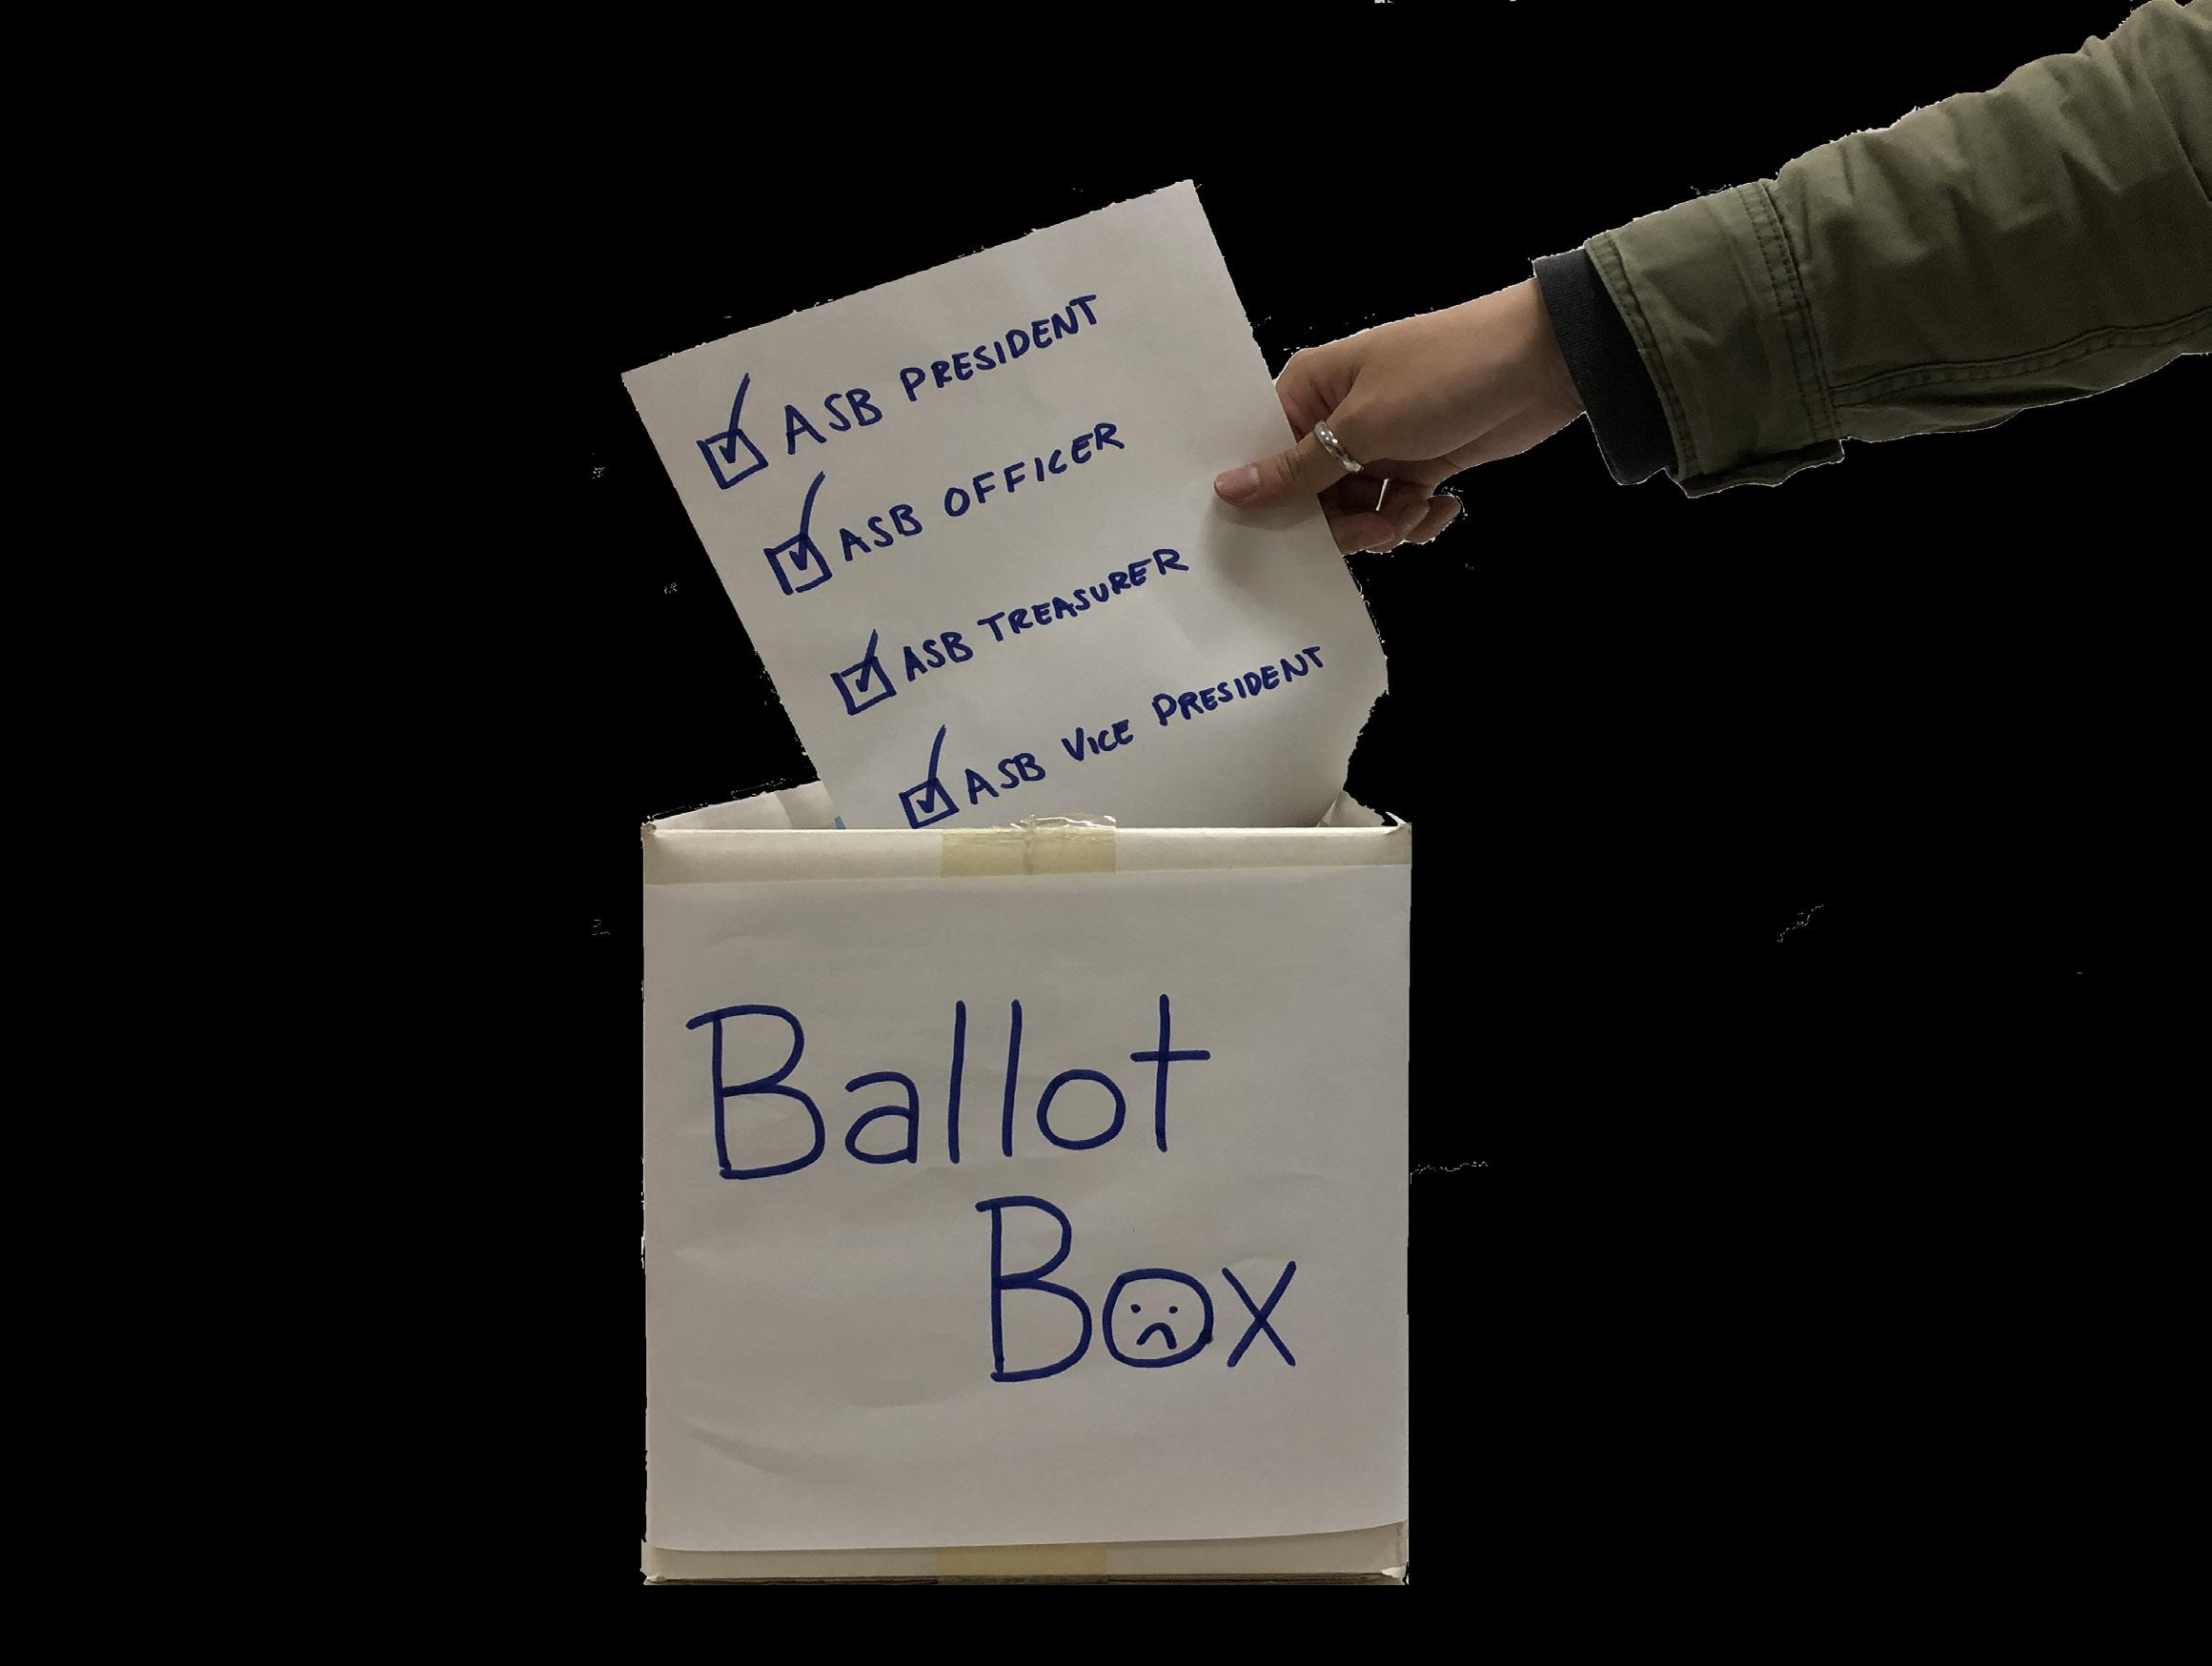 ASB PRESIDENT
ASB OFFICER
ASB TREASURER
ASB VICE PRESIDENT
Ballot
Box